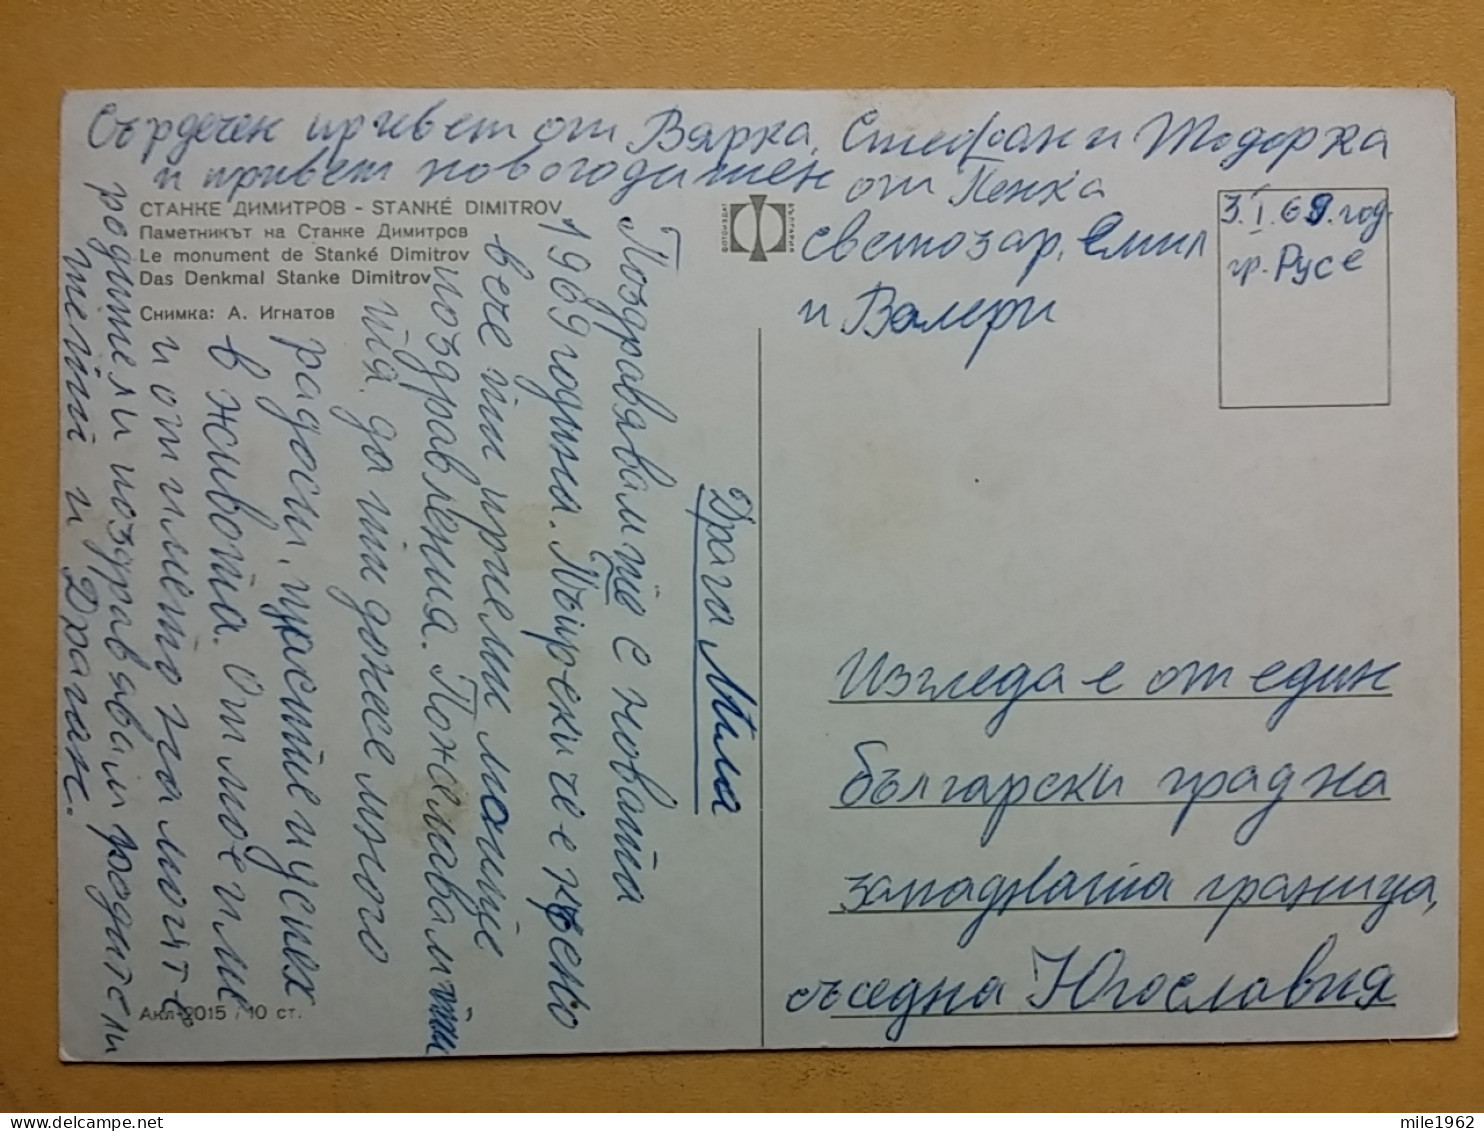 Сърдечен привет от Вярка, Стефан и Тодорка
и привет новогодишен от Пенка
Светозар, Емил
и Валери
3.I.69.год.
гр. Русе
СТАНКЕ ДИМИТРОВ - STANKÉ DIMITROV
Паметникът на Станке Димитров
Le monument de Stanké Dimitrov
Das Denkmal Stanke Dimitrov
Снимка: А. Игнатов
ФОТОИЗДАТ
БЪЛГАРИЯ
Драга Мила
Поздравявам те с новата
1969 година. Макар че е късно
вече ти приеми моите
поздравления. Пожелавам ти
тя да ти донесе много
радост, щастие и успех
в живота. От мое име
и от името на моите
родители поздравявам родители
телти и Драган.
Изгледа е от един
български град на
западната граница,
съседна Югославия
Акл-2015 / 10 ст.
mile1962